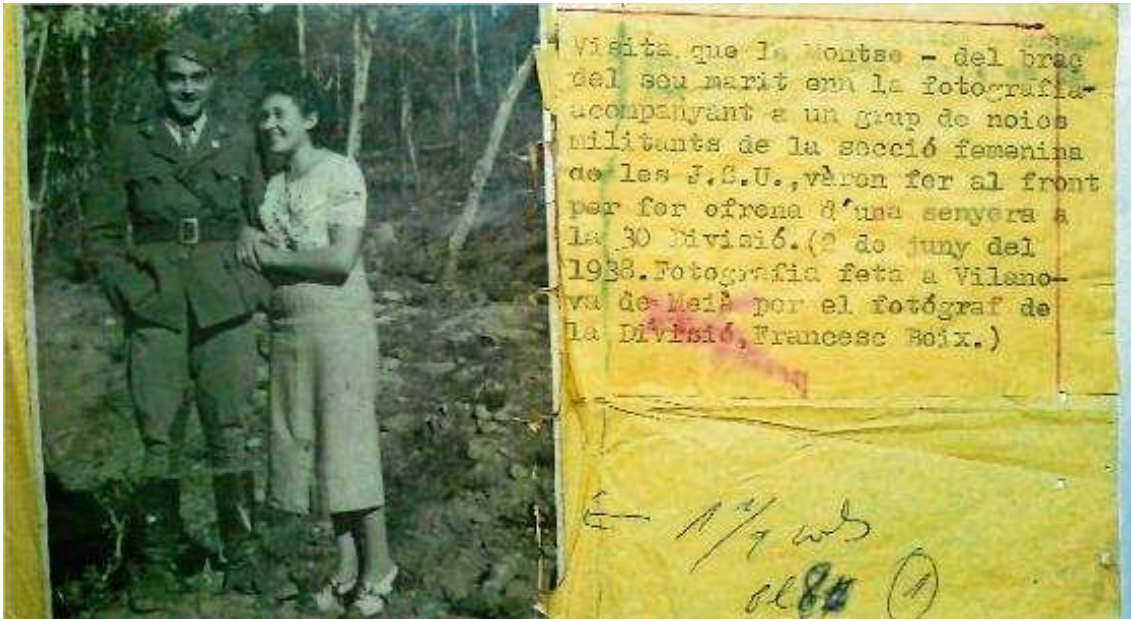 Visita que la Montse - del braç
del seu marit enn la fotografía-
acompanyant a un grup de noies
militants de la secció femenina
de les J.S.U.,vàren fer al front
per fer ofrena d'una senyera a
la 30 Divisió.(2 de juny del
1938.Fotografia feta a Vilano-
va de Meià per el fotógraf de
la Divisió,Francesc Boix.)
1